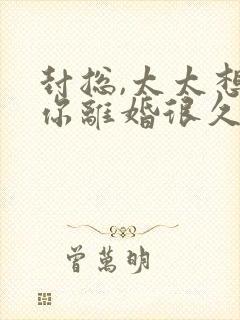 封總,太太想
你離婚很久
曾萬明